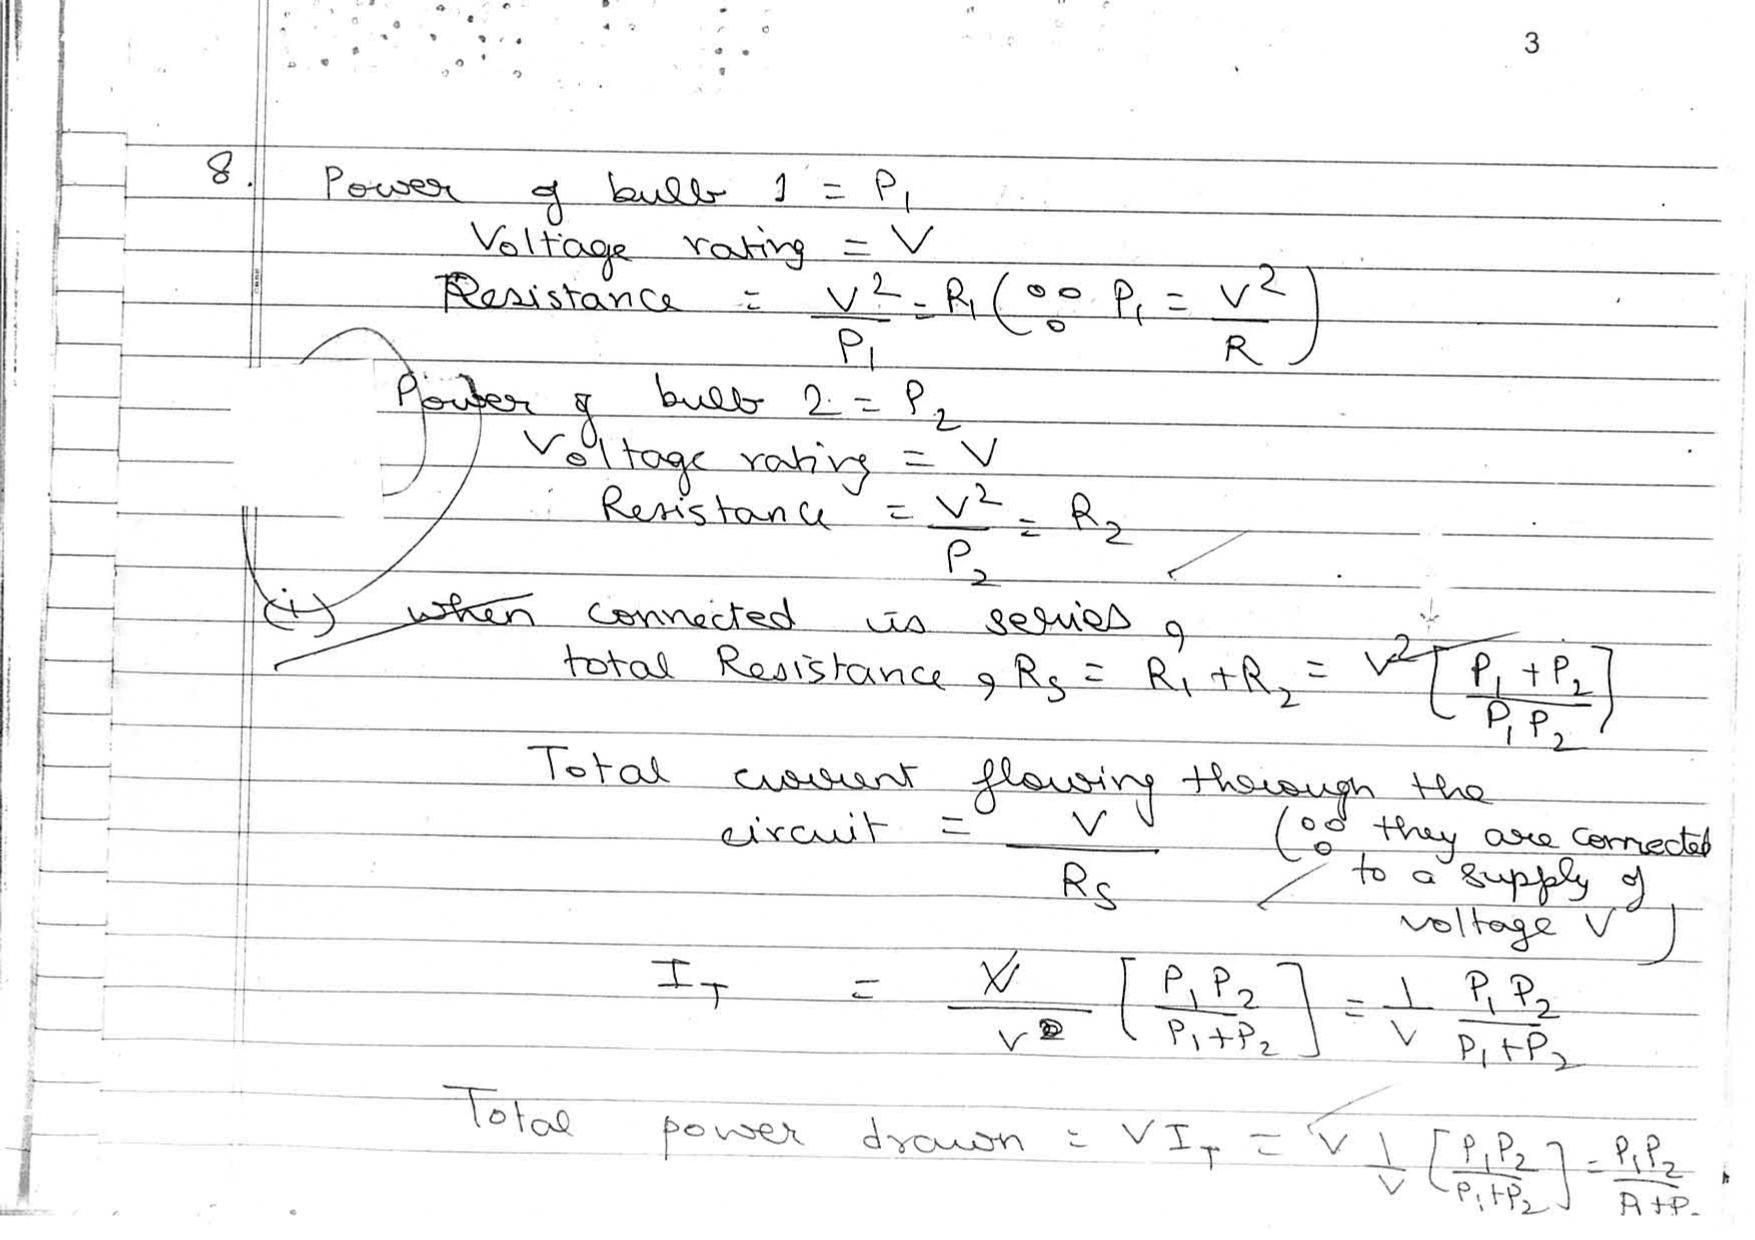 3
8. Power of bulb 1 = P₁
Voltage rating = V
Resistance = V²/P₁ = R₁ (∵ P₁ = V²/R)
Power of bulb 2 = P₂
Voltage rating = V
Resistance = V²/P₂ = R₂
(i) when connected is series,
total Resistance, Rs = R₁ + R₂ = V² [(P₁ + P₂)/(P₁ P₂)]
Total current flowing through the
circuit = V/Rs (∵ they are connected
to a supply of
voltage V)
I_T = V/V² [P₁ P₂/(P₁ + P₂)] = 1/V P₁ P₂/(P₁ + P₂)
Total power drawn = V I_T = V 1/V [P₁ P₂/(P₁ + P₂)] = P₁ P₂/(P₁ + P